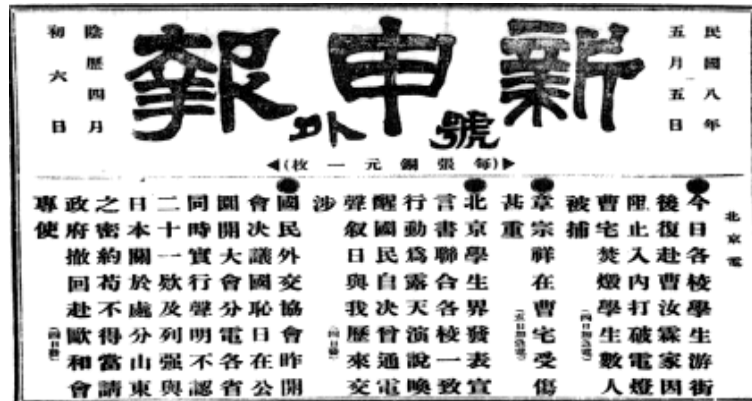 民國八年
五月五日
新申報
號外
陰歷四月
初六日
(每張銅元一枚)
北京電
●今日各校學生游街
後復赴曹汝霖家因
阻止入內打破電燈
曹宅焚燬學生數人
被捕(四日加急電)
●章宗祥在曹宅受傷
甚重(五日加急電)
●北京學生界發表宣
言書聯合各校一致
行動爲露天演說喚
醒國民自決曾通電
聲叙日與我歷來交
涉(四日發)
●國民外交協會昨開
會決議國恥日在公
園開大會分電各省
同時實行聲明不認
二十一欵及列强與
日本關於處分山東
之密約苟不得當請
政府撤回赴歐和會
專使(四日發)